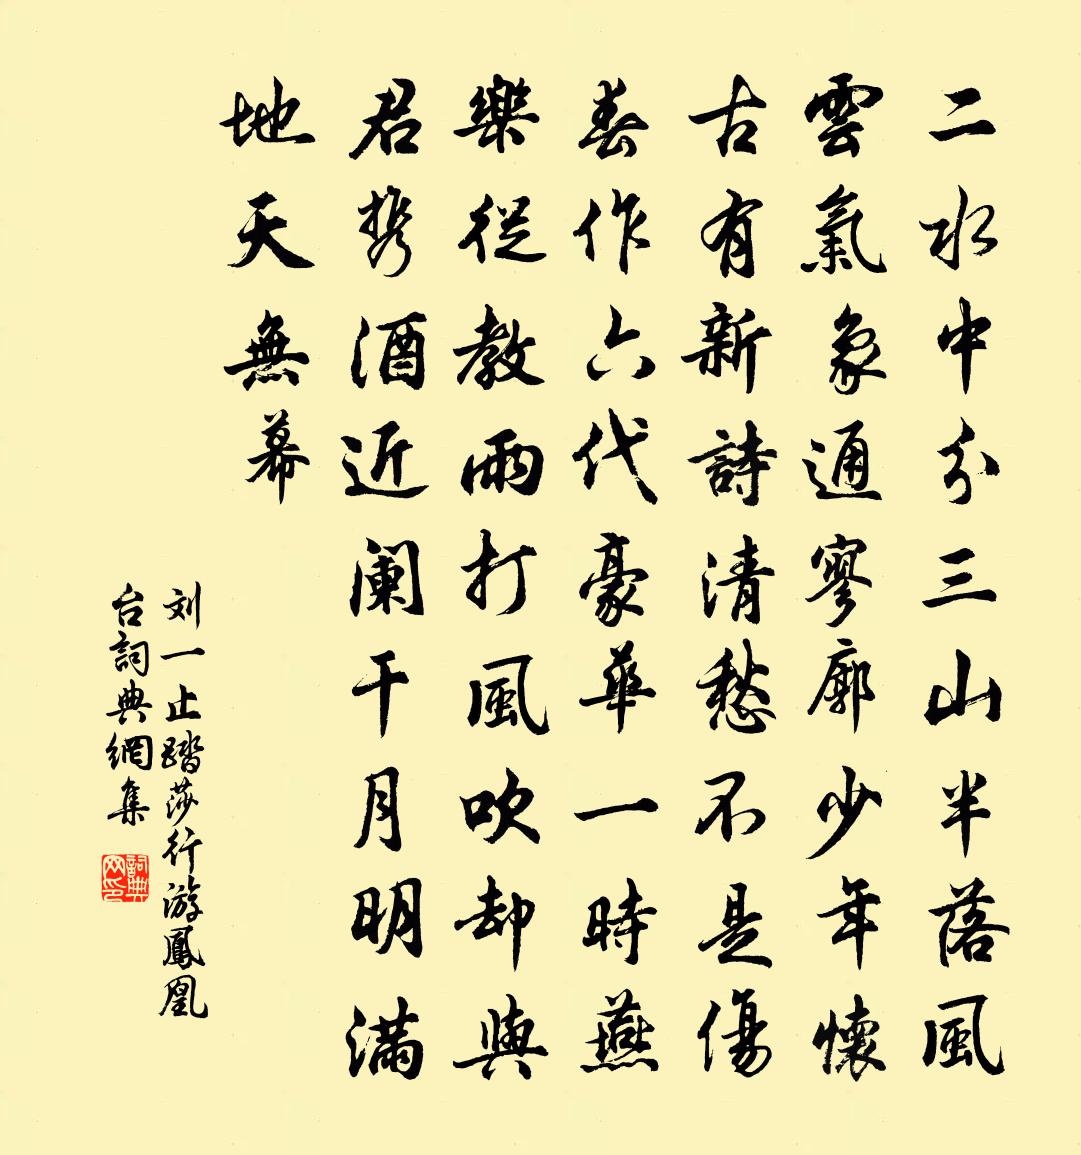 二水中分三山半落風
雲氣象通寥廓少年懷
古有新詩清愁不是傷
春作六代豪華一時燕
樂從教雨打風吹却與
君携酒近阑干月明满
地天無幕
刘一止踏莎行游鳳凰
台詞典網集
詞典网印